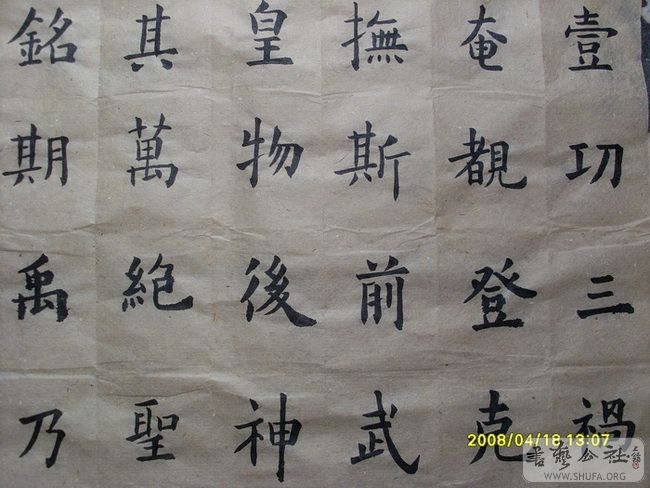 壹㓛三禍
奄覩登克
撫斯前武
皇物後神
其萬絕聖
銘期禹乃
2008/04/18 13:07
書藝公社
WWW.SHUFA.ORG